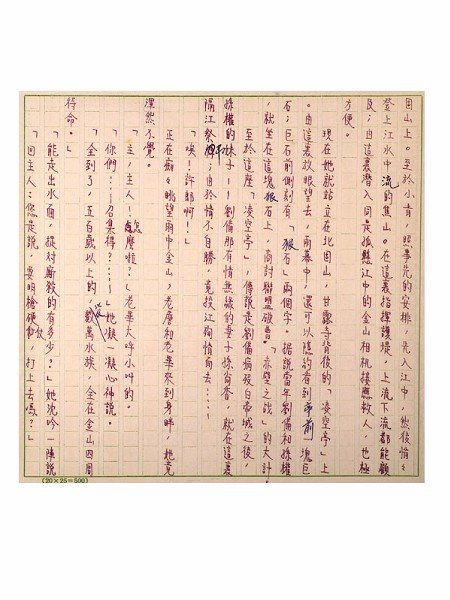 固山上。至於小青，照事先的安排，先入江中，然後悄々
登上江水中流的焦山。在這裏指揮護堤，上流下流都能顧
及；由這裏潛入同是孤懸江中的金山相机接應救人，也極
方便。
現在她就站立在北固山，甘露寺背後的「凌空亭」上
。由這裏放眼望去，雨幕中，還可以隱約看到亭前一塊巨
石；巨石前側刻有「狠石」兩個字。据說當年劉備和孫權
，就坐在這塊狠石上，商討聯盟破曹「赤壁之战」的大計
至於這座「凌空亭」，傳說是劉備病歿白帝城之後，
孫權的妹子——劉備那有情無緣的妻子孫尚香，就在這裏
隔江祭弔；由於情不自勝，竟投江殉情而去……
「唉！許郎啊！」
正在癡々眺望雨中金山，老龐和老葉來到身畔，她竟
渾然不覺。
「主，主人！怎麼啦？」老葉大呼小叫的。
「你們……召集得？……」她凝一凝心神說。
「全到了，五百歲以上的數萬水族，全在金山四周
待命。」
「能走出水面，提对廝殺的有多少？」她沈吟一陣說
「回主人：您是說，要明槍硬仗打上去嗎？」
(20×25=500)